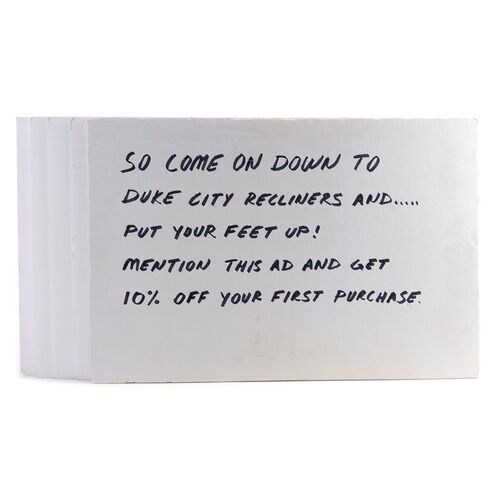 SO COME ON DOWN TO
DUKE CITY RECLINERS AND.....
PUT YOUR FEET UP!
MENTION THIS AD AND GET
10% OFF YOUR FIRST PURCHASE.